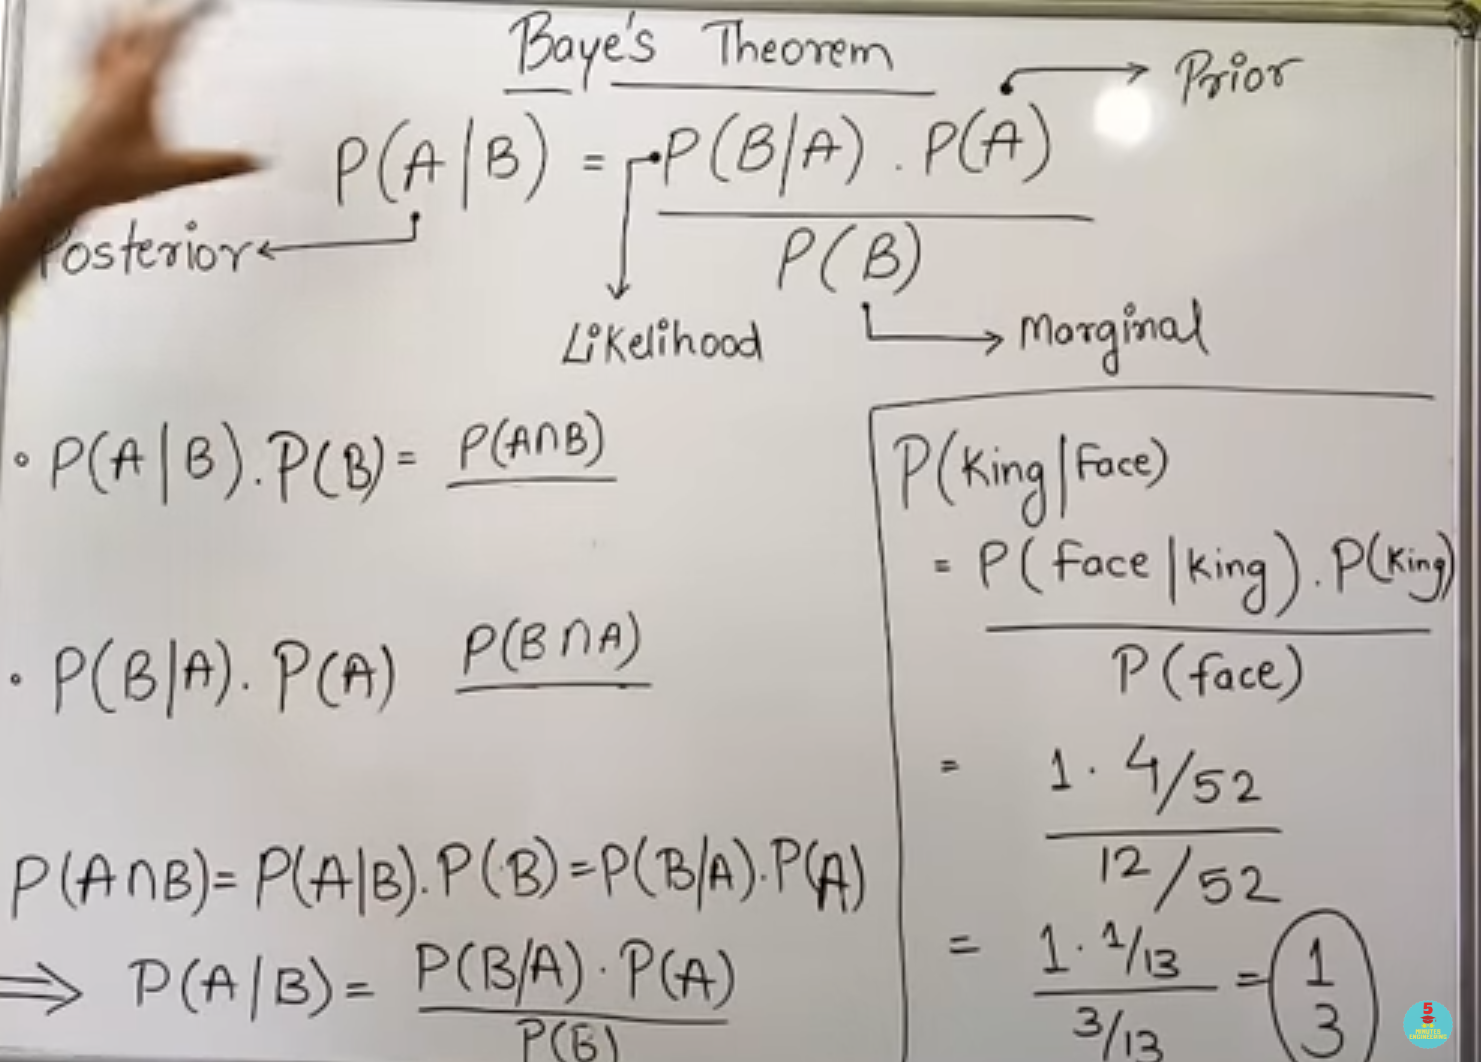 Baye's Theorem
P(A|B) = P(B/A) . P(A)
P(B)
Prior
Posterior
Likelihood
Marginal
• P(A|B).P(B) = P(A∩B)
• P(B/A). P(A) P(B∩A)
P(A∩B)= P(A|B).P(B)=P(B/A).P(A)
⇒ P(A/B)= P(B/A) . P(A)
P(B)
P(King|Face)
= P(Face|King). P(King)
P(face)
= 1 . 4/52
12/52
= 1 . 1/13
3/13
= 1
3
5
MINUTES
ENGINEERING